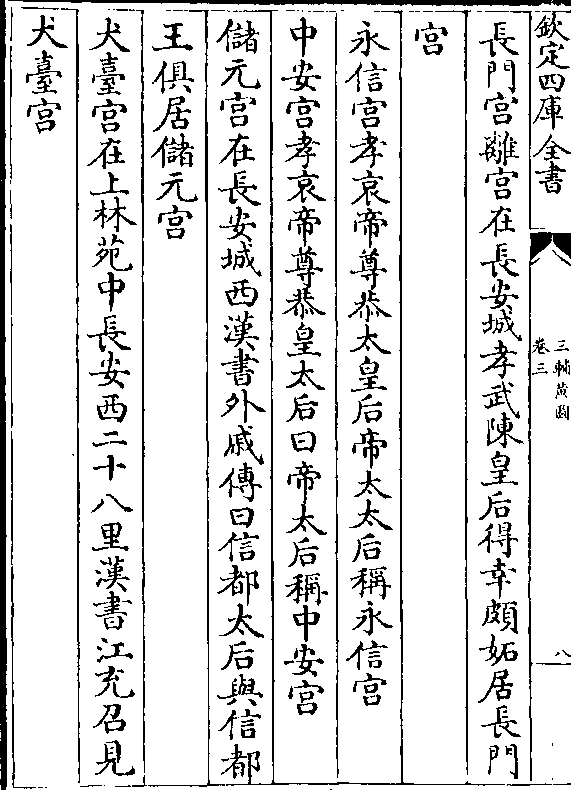 欽定四庫全書
三輔黃圖
卷三
八
長門宮離宮在長安城孝武陳皇后得幸頗妬居長門
宮
永信宮孝哀帝尊恭太皇后帝太太后稱永信宮
中安宮孝哀帝尊恭皇太后曰帝太后稱中安宮
儲元宮在長安城西漢書外戚傳曰信都太后與信都
王俱居儲元宮
犬臺宮在上林苑中長安西二十八里漢書江充召見
犬臺宮